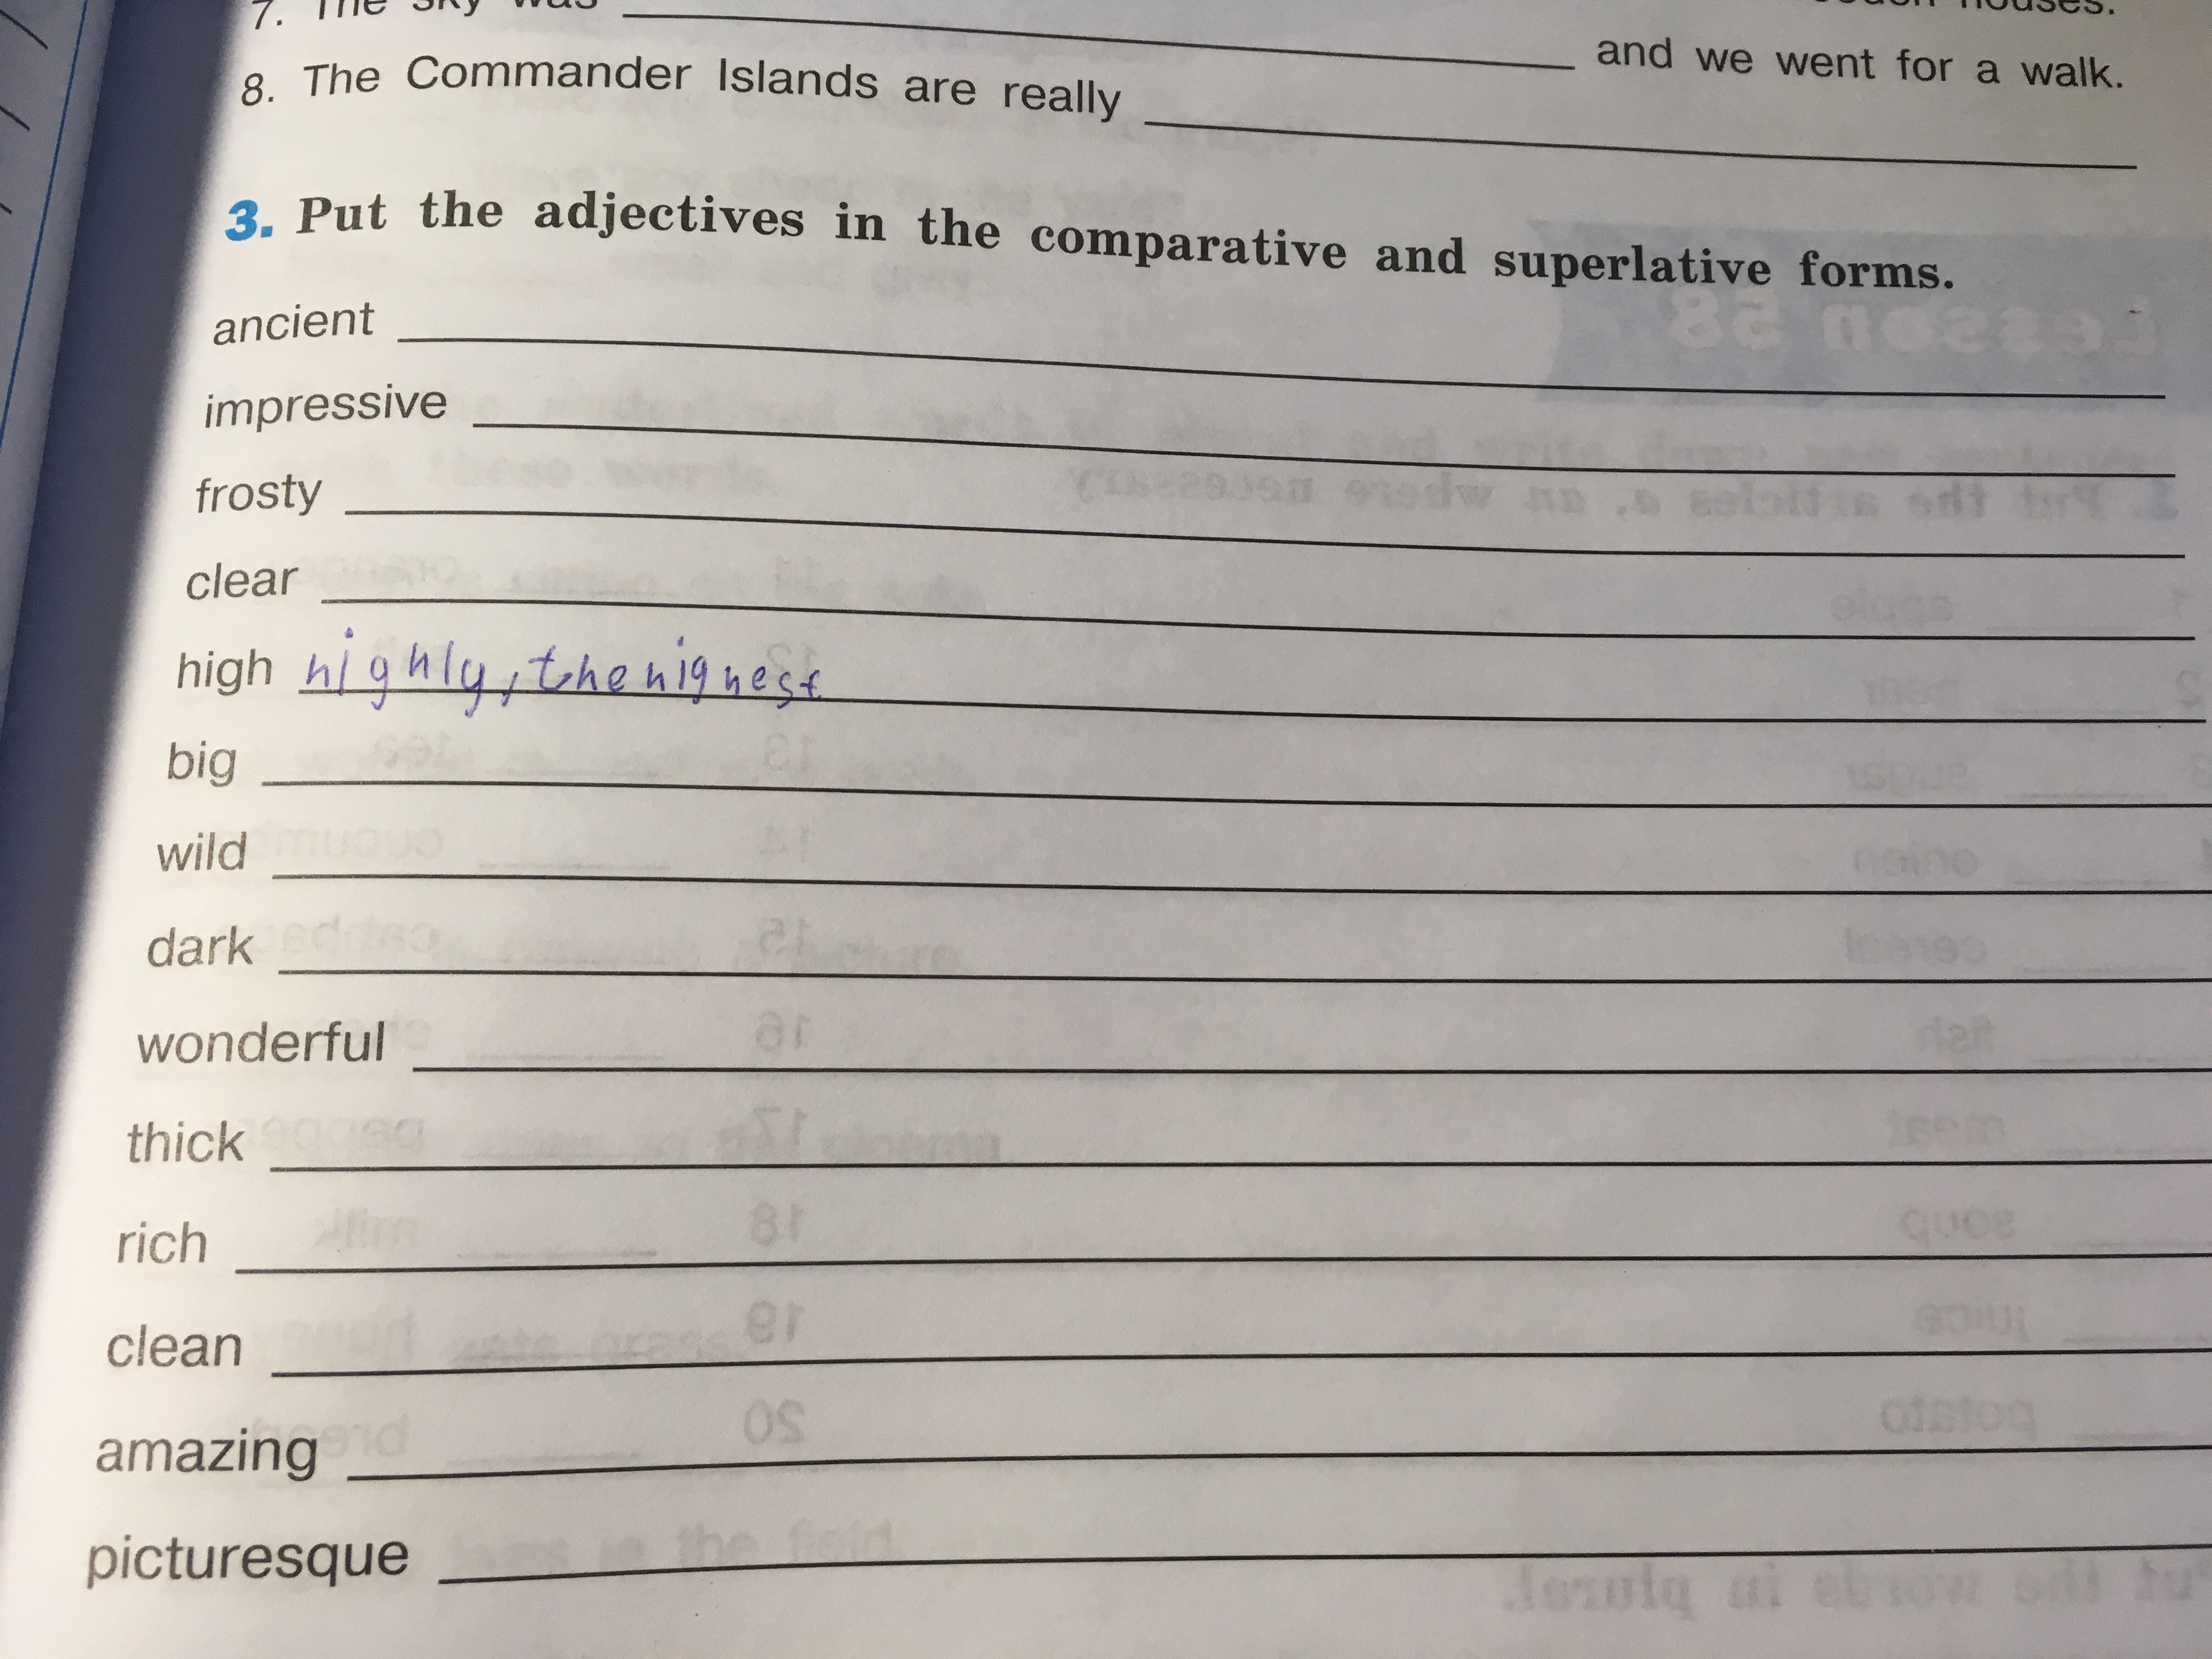 7. The sky was ____ houses.
8. The Commander Islands are really ____ and we went for a walk.
3. Put the adjectives in the comparative and superlative forms.
ancient
impressive
frosty
clear
high highly, the highest
big
wild
dark
wonderful
thick
rich
clean
amazing
picturesque